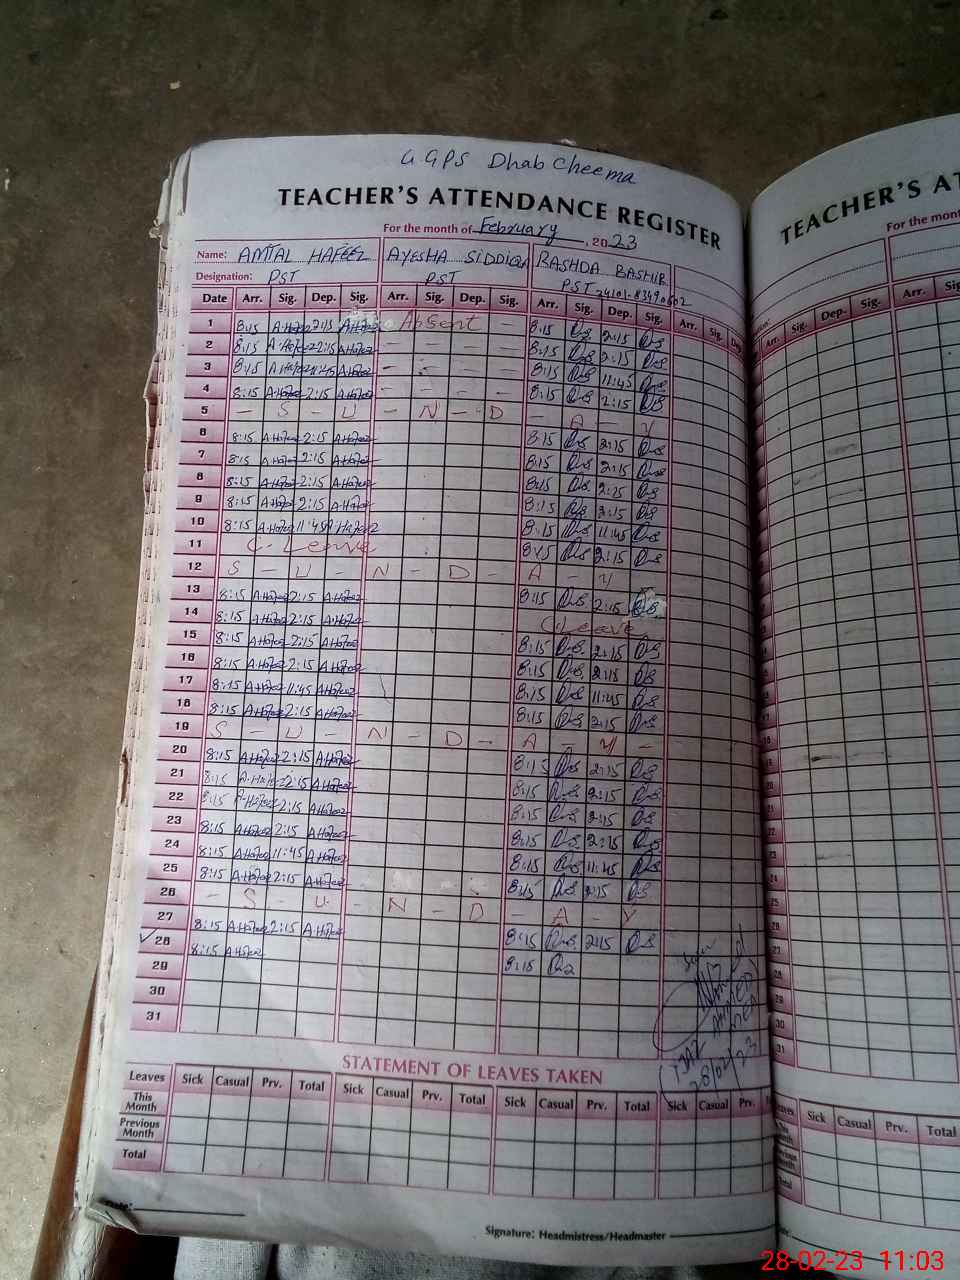 G GPS Dhab Cheema
TEACHER'S ATTENDANCE REGISTER
For the month of February, 2023
Name: AMTAL HAFEEZ AYESHA SIDDIQA RASHDA BASHIR
Designation: PST PST PST
Date Arr. Sig. Dep. Sig. Arr. Sig. Dep. Sig. Arr. Sig. Dep. Sig. Arr. Sig. Dep
1 8:15 A.Hafeez 2:15 A.Hafeez Absent - 8:15 2:15
2 8:15 A.Hafeez 2:15 A.Hafeez - - - - 8:15 2:15
3 8:15 A.Hafeez 11:45 A.Hafeez - - - - 8:15 11:45
4 8:15 A.Hafeez 2:15 A.Hafeez - - - - 8:15 2:15
5 - S - U - N - D - A - Y
6 8:15 A.Hafeez 2:15 A.Hafeez 8:15 2:15
7 8:15 A.Hafeez 2:15 A.Hafeez 8:15 2:15
8 8:15 A.Hafeez 2:15 A.Hafeez 8:15 2:15
9 8:15 A.Hafeez 2:15 A.Hafeez 8:15 2:15
10 8:15 A.Hafeez 11:45 A.Hafeez 8:15 11:45
11 C. Leave 8:15 2:15
12 S - U - N - D - A - Y
13 8:15 A.Hafeez 2:15 A.Hafeez 8:15 2:15
14 8:15 A.Hafeez 2:15 A.Hafeez C. Leave
15 8:15 A.Hafeez 2:15 A.Hafeez 8:15 2:15
16 8:15 A.Hafeez 2:15 A.Hafeez 8:15 2:15
17 8:15 A.Hafeez 11:45 A.Hafeez 8:15 11:45
18 8:15 A.Hafeez 2:15 A.Hafeez 8:15 2:15
19 S - U - N - D - A - Y -
20 8:15 A.Hafeez 2:15 A.Hafeez 8:15 2:15
21 8:15 A.Hafeez 2:15 A.Hafeez 8:15 2:15
22 8:15 A.Hafeez 2:15 A.Hafeez 8:15 2:15
23 8:15 A.Hafeez 2:15 A.Hafeez 8:15 2:15
24 8:15 A.Hafeez 11:45 A.Hafeez 8:15 11:45
25 8:15 A.Hafeez 2:15 A.Hafeez 8:15 2:15
26 - S - U - N - D - A - Y
27 8:15 A.Hafeez 2:15 A.Hafeez 8:15 2:15
28 8:15 A.Hafeez 8:15
29
30
31
28/02/23
STATEMENT OF LEAVES TAKEN
Leaves Sick Casual Prv. Total Sick Casual Prv. Total Sick Casual Prv. Total Sick Casual Prv.
This Month
Previous Month
Total
Signature: Headmistress/Headmaster
TEACHER'S
For the
Arr. Sig. Dep. Sig. Arr. Sig.
Sick Casual Prv. Total
28-02-23 11:03